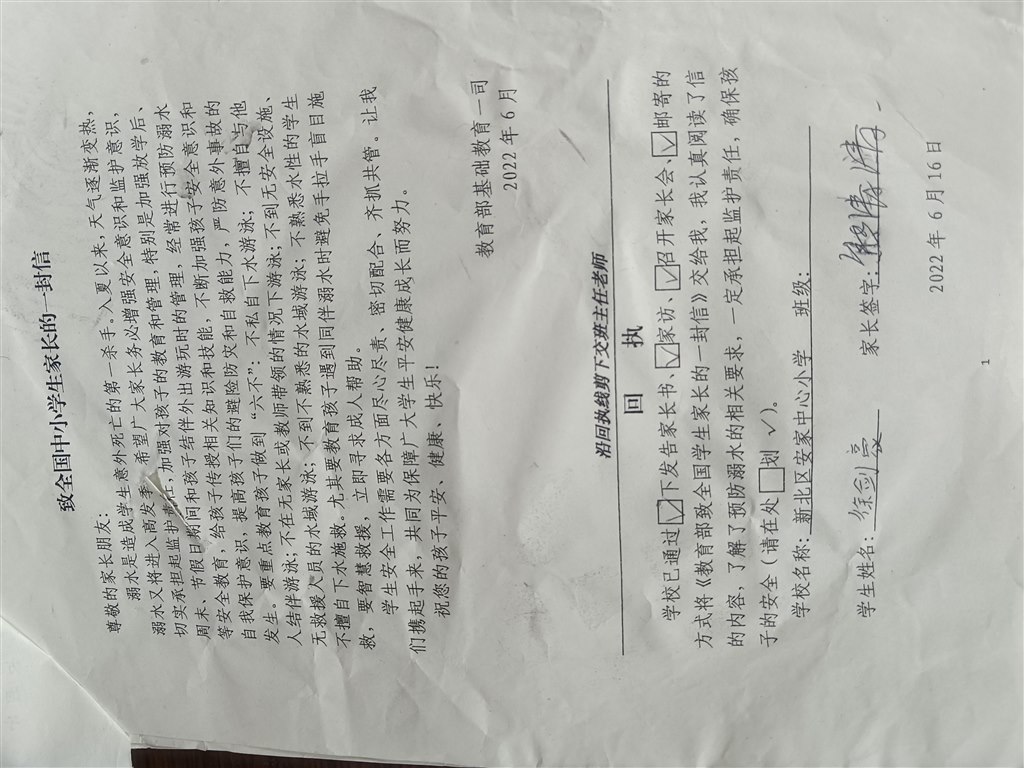 致全国中小学生家长的一封信
尊敬的家长朋友：
溺水是造成学生意外死亡的第一杀手。入夏以来，天气逐渐变热，
溺水又将进入高发季，希望广大家长务必增强安全意识和监护意识，
切实承担起监护责任，加强对孩子的教育和管理，特别是加强放学后、
周末、节假日期间和孩子结伴外出游玩时的管理，经常进行预防溺水
等安全教育，给孩子传授相关知识和技能，不断加强孩子安全意识和
自我保护意识，提高孩子们的避险防灾和自救能力，严防意外事故的
发生。要重点教育孩子做到“六不”：不私自下水游泳；不擅自与他
人结伴游泳；不在无家长或教师带领的情况下游泳；不到无安全设施、
无救援人员的水域游泳；不到不熟悉的水域游泳；不熟悉水性的学生
不擅自下水施救。尤其要教育孩子遇到同伴溺水时避免手拉手盲目施
救，要智慧救援，立即寻求成人帮助。
学生安全工作需要各方面尽心尽责、密切配合、齐抓共管。让我
们携起手来，共同为保障广大学生平安健康成长而努力。
祝您的孩子平安、健康、快乐！
教育部基础教育一司
2022 年 6 月
沿回执线剪下交班主任老师
回 执
学校已通过☑下发告家长书、☑家访、☑召开家长会、☑邮寄的
方式将《教育部致全国学生家长的一封信》交给我，我认真阅读了信
的内容，了解了预防溺水的相关要求，一定承担起监护责任，确保孩
子的安全（请在处□划✓）。
学校名称：新北区安家中心小学 班级：
学生姓名：徐剑豪 家长签字：
2022 年 6 月 16 日
1